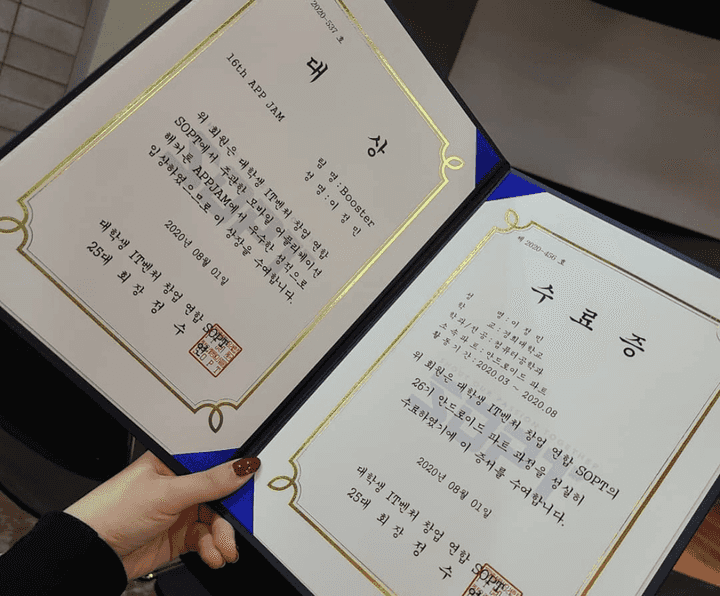 2020-537 호
대 상
16th APP JAM
팀 명 : Booster
성 명 : 이 정 민
위 회원은 대학생 IT벤처 창업 연합
SOPT에서 주관한 모바일 어플리케이션
해커톤 APPJAM에서 우수한 성적으로
입상하였으므로 이 상장을 수여합니다.
2020년 08월 01일
대학생 IT벤처 창업 연합 SOPT
25대 회장 정 수 연
제 2020-456 호
수 료 증
성 명 : 이 정 민
학 교 : 경희대학교
학과/전공 : 컴퓨터공학과
소속파트 : 안드로이드 파트
활동기간 : 2020.03 ~ 2020.08
위 회원은 대학생 IT벤처 창업 연합 SOPT의
26기 안드로이드 파트 과정을 성실히
수료하였기에 이 증서를 수여합니다.
2020년 08월 01일
대학생 IT벤처 창업 연합 SOPT
25대 회장 정 수